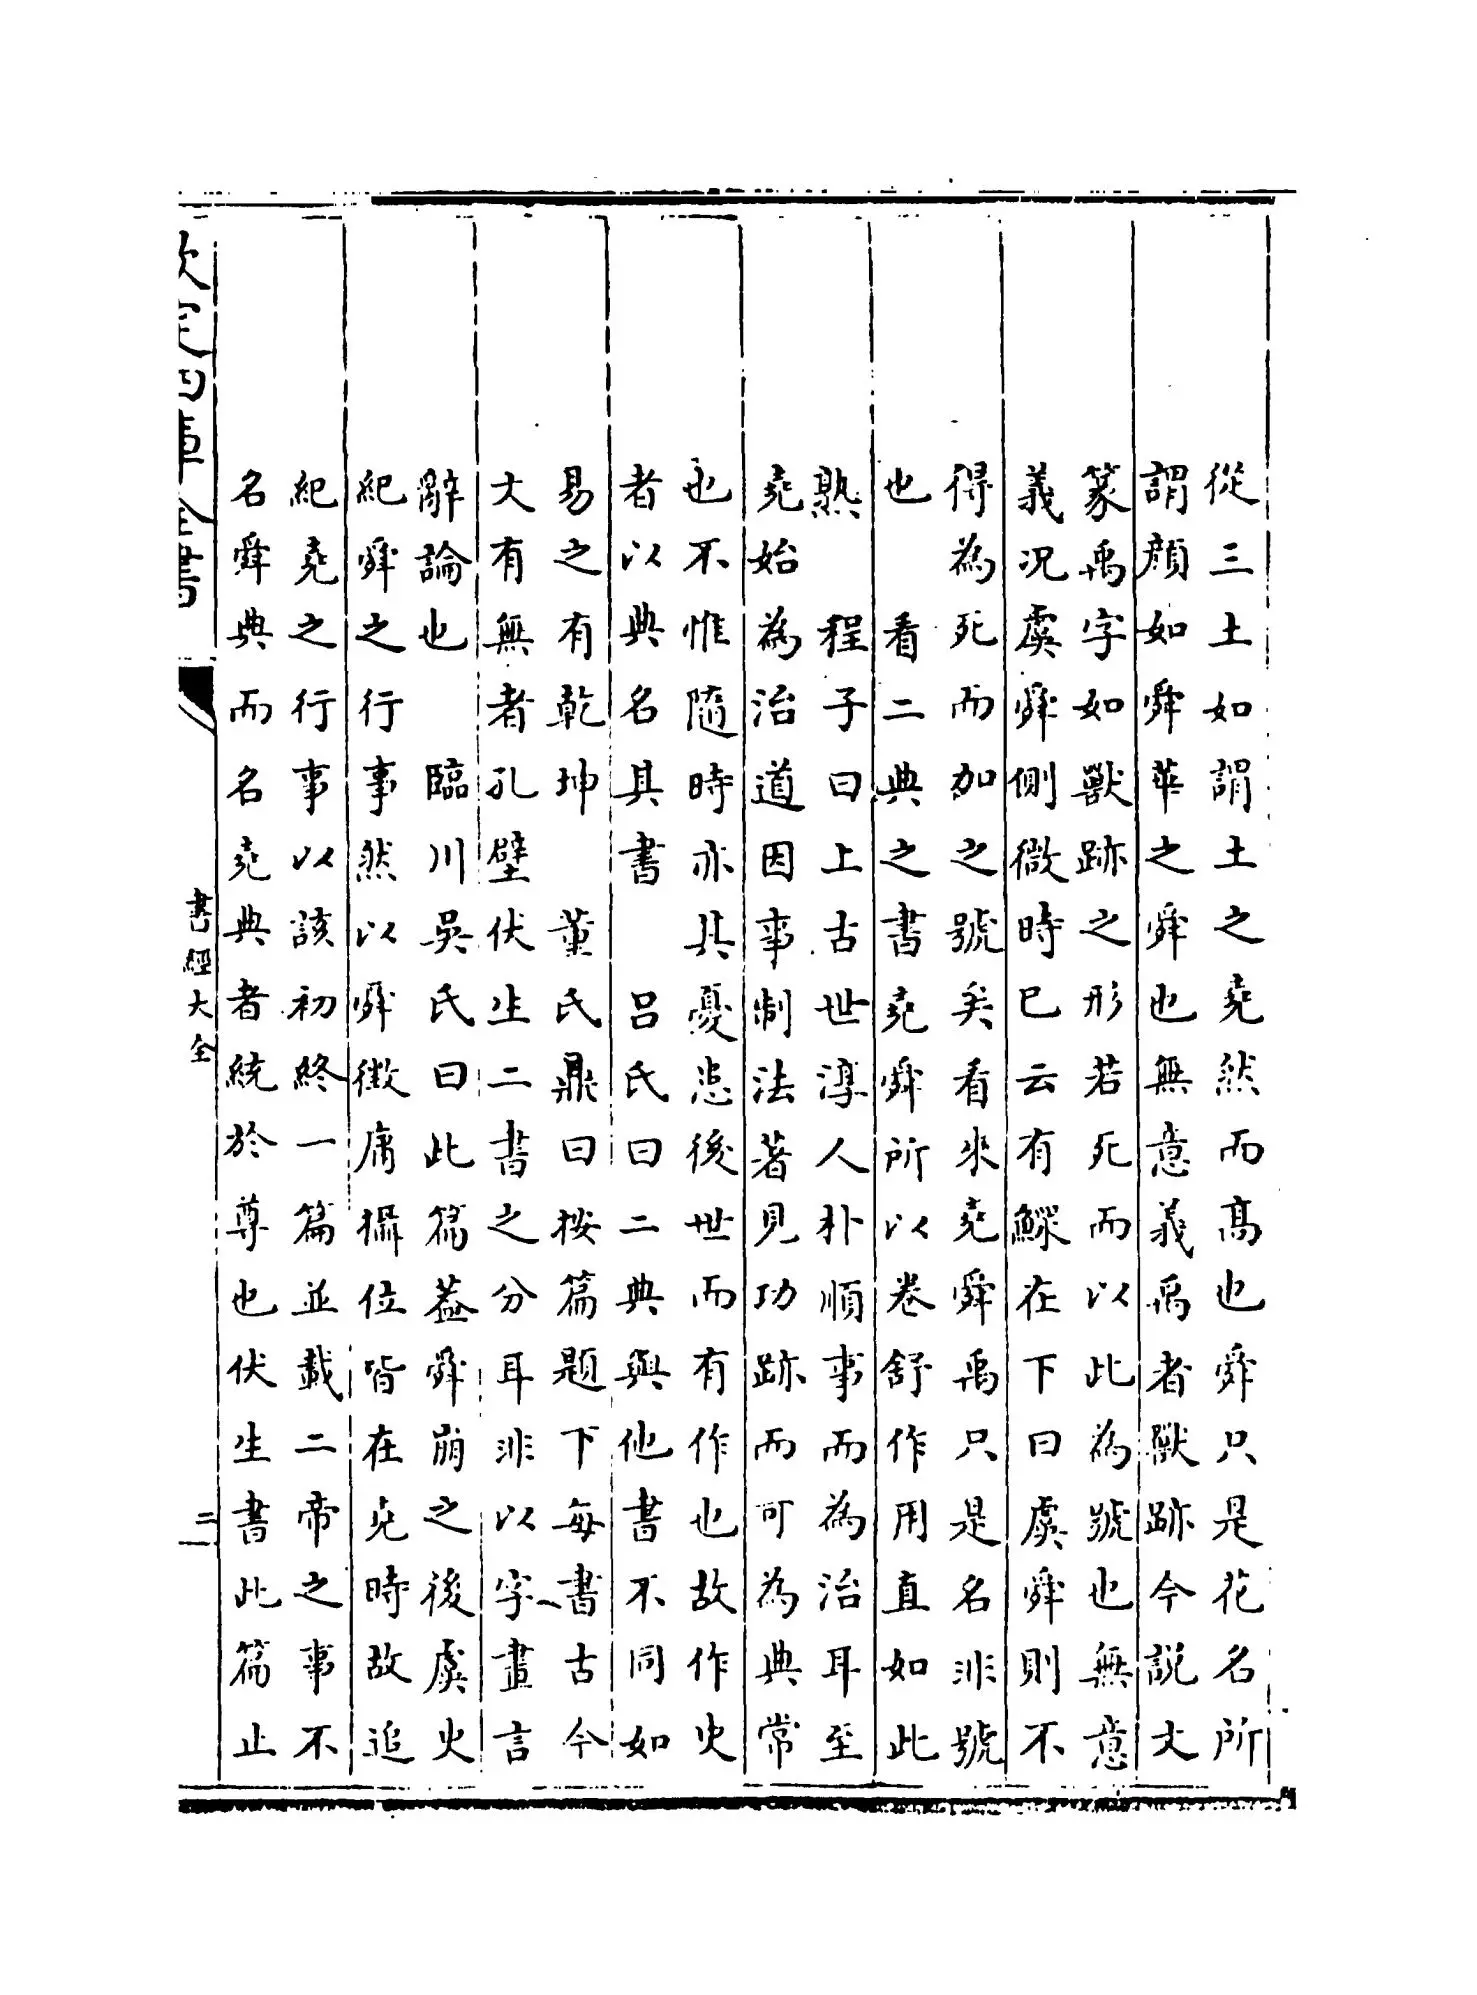 從三土如謂土之堯然而高也舜只是花名所
謂顔如舜華之舜也無意義禹者獸跡今説文
篆禹字如獸跡之形若死而以此為號也無意
義況虞舜側微時已云有鰥在下曰虞舜則不
得為死而加之號矣看來堯舜禹只是名非號
也　看二典之書堯舜所以卷舒作用直如此
熟　程子曰上古世淳人朴順事而為治耳至
堯始為治道因事制法著見功跡而可為典常
也不惟隨時亦其憂患後世而有作也故作史
者以典名其書　呂氏曰二典與他書不同如
易之有乾坤　董氏鼎曰按篇題下每書古今
文有無者孔壁伏生二書之分耳非以字畫言
辭論也　臨川吳氏曰此篇葢舜崩之後虞史
紀舜之行事然以舜徴庸攝位皆在堯時故追
紀堯之行事以該初終一篇並載二帝之事不
名舜典而名堯典者統於尊也伏生書此篇止
欽定四庫全書
書經大全
二